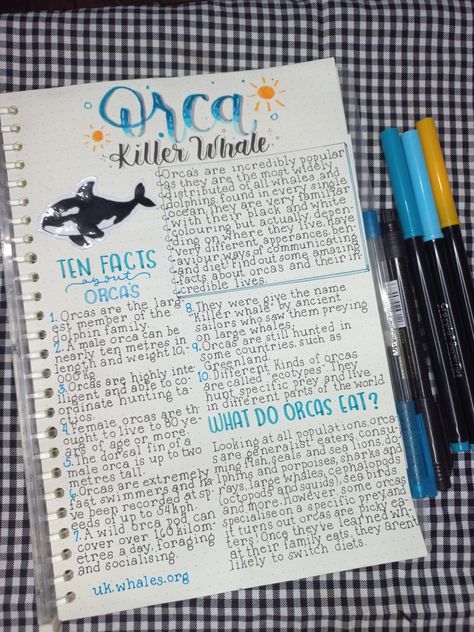 Orca
Killer Whale
Orcas are incredibly popular
as they are the most widely
distributed of all whales and
dolphins found in every single
ocean. They are very familiar
with their black and white
colouring but actually, depen
ding on where they live, have
very different apperances, beh
aviour, ways of communicating
and diet! Find out some amazing
facts about orcas and their in-
credible lives.
TEN FACTS
about
ORCA'S
1. Orcas are the larg
est member of the
dolphin family.
2. A male orca can be
nearly ten metres in
length and weight 10,
000 kg
3. Orcas are highly inte
lligent and able to co-
ordinate hunting ta-
ctics.
4. Female, orcas are th
ought to live to 80 ye-
ars of age or more.
5. The dorsal fin of a
male orca is up to two
metres tall.
6. Orcas are extremely
fast swimmers and ha
ve been recorded at sp
eeds of up to 54kph.
7. A wild orca pod can
cover over 160 kilom
etres a day, foraging
and socialising.
uk.whales.org
8. They were give the name
"killer whale" by ancient
sailors who saw them preying
on large whales.
9. Orcas are still hunted in
some countries, such as
Greenland,
10. Different kinds of orcas
are called "ecotypes". They
hunt specific prey and live
in different parts of the world
WHAT DO ORCAS EAT?
Looking at all populations, orcas
are generalist eaters, consu-
ming fish, seals and sea lions, do
lphins and porpoises, sharks and
rays, large whales, cephalopods
(octopods and squids), sea birds
and more, however, some orcas
specialise on a specific prey, and
it turns out orcas are picky ea
ters! Once they've learned wh-
at their family eats, they aren't
likely to switch diets.